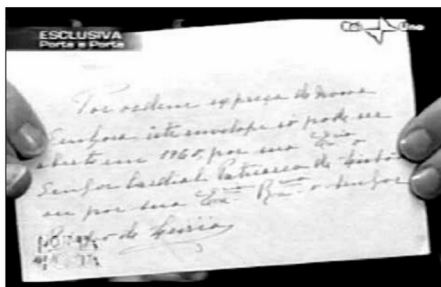 ESCLUSIVA
Porta a Porta
Rai Uno
Por ordem expreça de Nossa
Senhora este envelope só pode ser
aberto em 1960, por sua Em.cia o
Senhor Cardial Patriarca de Lisboa
ou por sua Ex.cia Rv.ma o Senhor
Bispo de Leiria